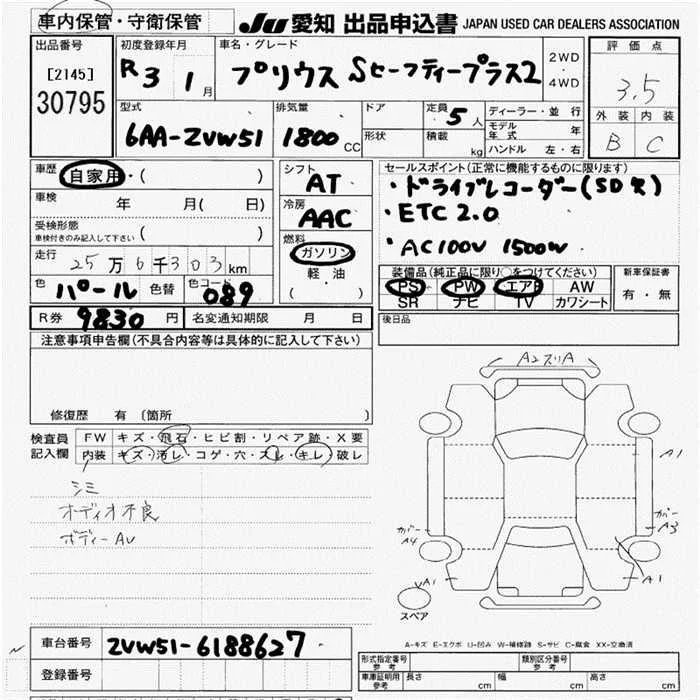 車内保管・守衛保管 JU 愛知 出品申込書 JAPAN USED CAR DEALERS ASSOCIATION
出品番号 初度登録年月 車名・グレード 2WD・4WD 評価点
[2145] R3 1月 プリウス Sセーフティープラス2 3.5
30795
型式 排気量 ドア 定員 5人 ディーラー・並行 外装 内装
6AA-ZVW51 1800CC 形状 積載 kg モデル年式 年 B C
ハンドル 左・右
車歴 自家用・( ) シフト AT セールスポイント(正常に機能するものに限ります)
車検 年 月( 日) 冷房 AAC ・ドライブレコーダー(SD欠)
受検形態 ・ETC 2.0
車検付きのみ記入して下さい ( ) 燃料 ガソリン ・AC100V 1500W
走行 25万6千303km 軽・油 装備品(純正品に限り○をつけてください) 新車保証書
色 パール 色替 色コード 089 ( ) PS PW エアB AW 有・無
SR ナビ TV カワシート
R券 9830円 名変通知期限 月 日 後日品
注意事項申告欄(不具合内容等は具体的に記入して下さい)
修復歴 有 (箇所 )
検査員記入欄 FW キズ・飛石・ヒビ割・リペア跡・X要
内装 キズ・汚レ・コゲ・穴・スレ・キレ・破レ
シミ
オーディオ不良
ボディーAU
A2スリA
A1
カバー A3
カバー A4
A1
A1
スペア
A-キズ E-エクボ U-凹み W-補修跡 S-サビ C-腐食 XX-交換済
車台番号 ZVW51-6188627
登録番号
形式指定番号 参考 類別区分番号 参考
車庫証明用 参考 長さ cm 幅 cm 高さ cm